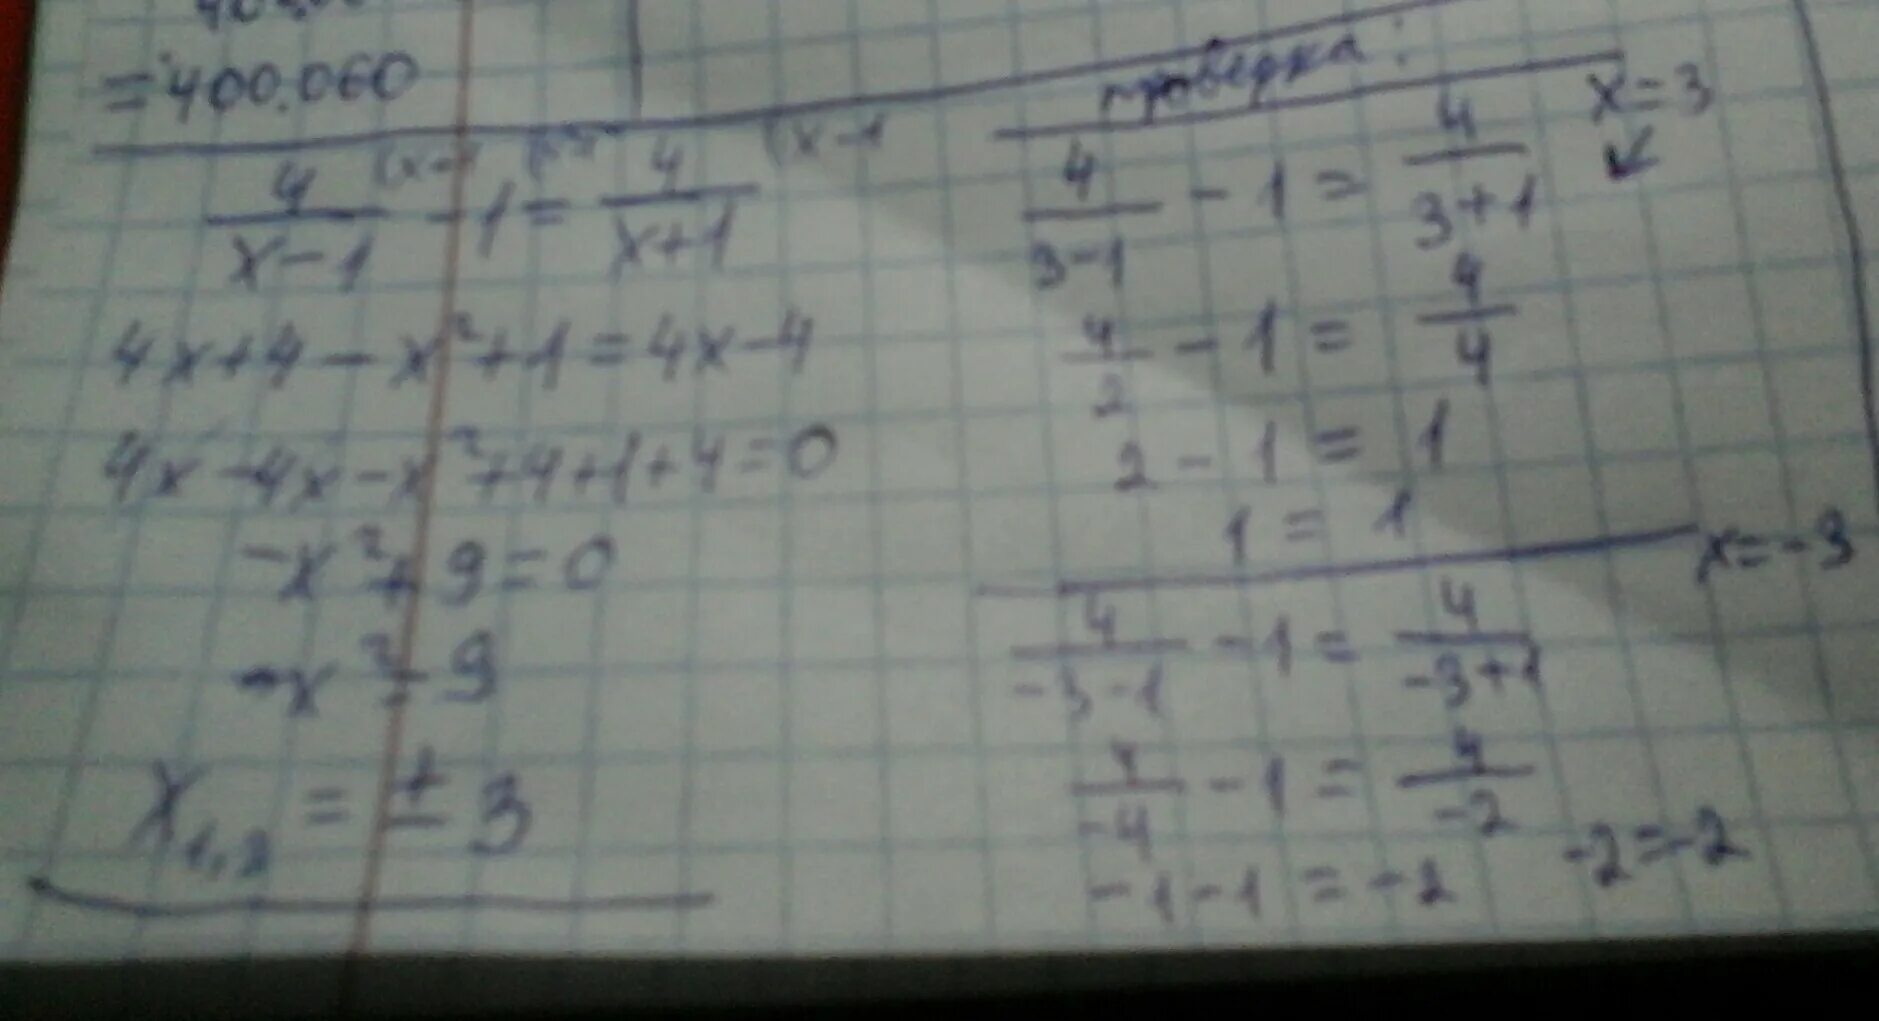 =400.060
4/(x-1) - 1 = 4/(x+1) (x-1
4x+4-x²+1=4x-4
4x-4x-x²+4+1+4=0
-x²+9=0
-x²=9
x₁,₂ = ± 3
проверка:
x=3
4/(3-1) - 1 = 4/(3+1)
4/2 - 1 = 4/4
2 - 1 = 1
1 = 1
x=-3
4/(-3-1) - 1 = 4/(-3+1)
4/(-4) - 1 = 4/(-2)
-1-1=-2 -2=-2